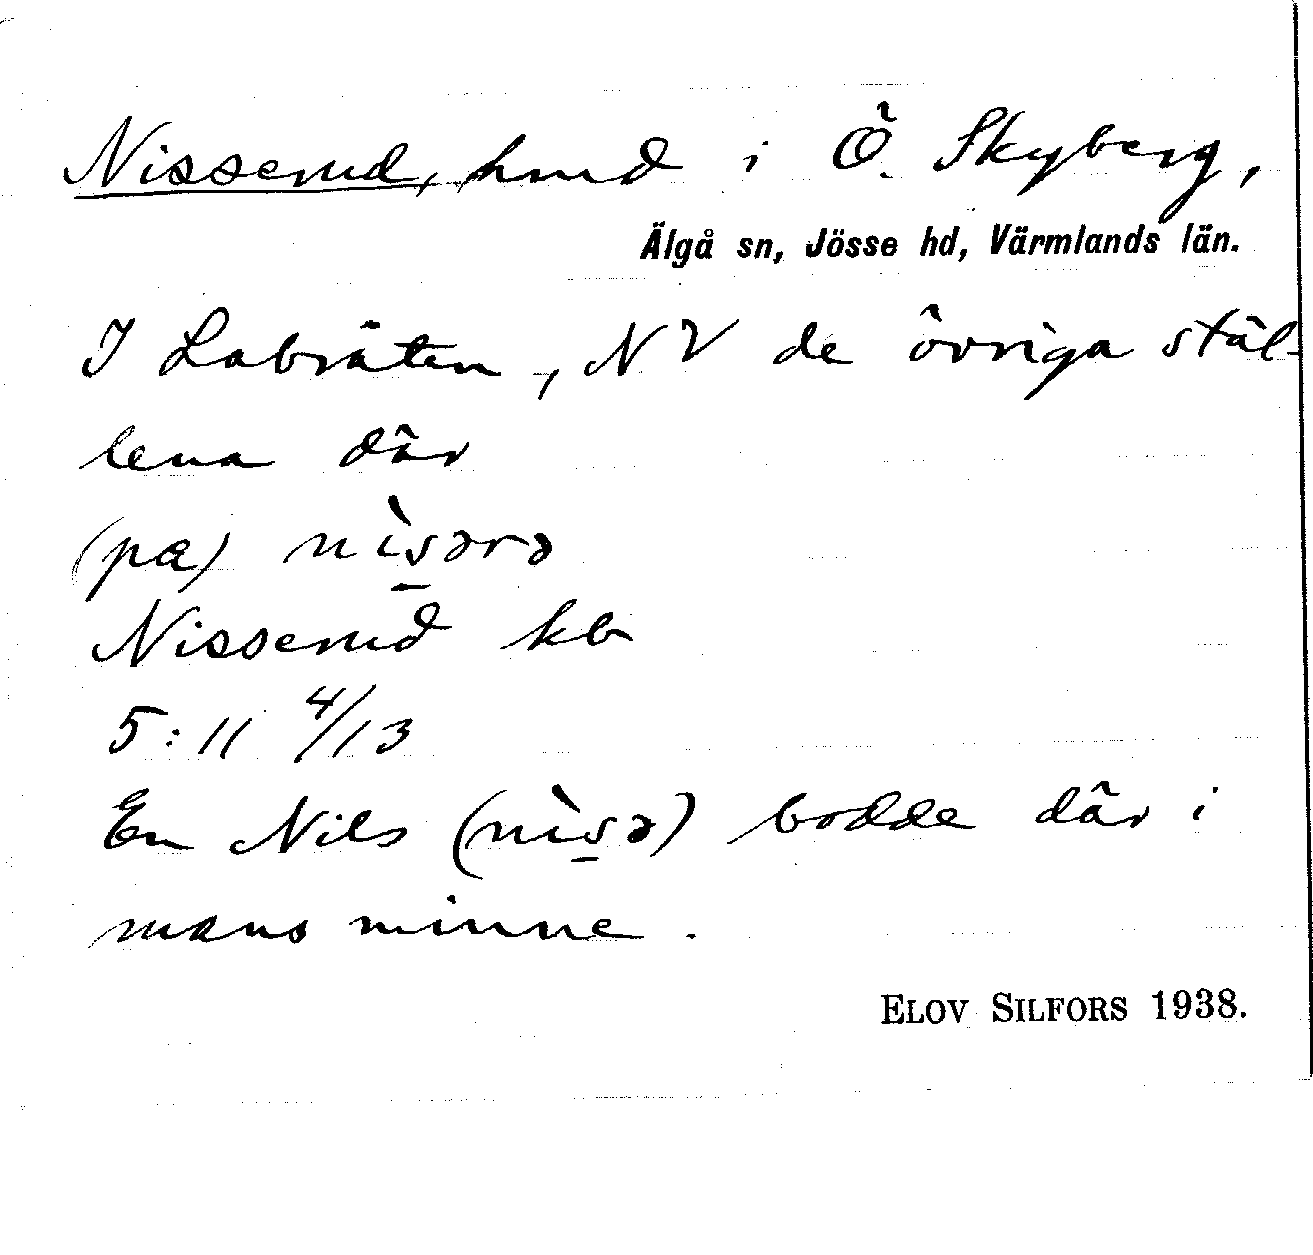 Nisserud, hmd i Ö. Skyberg,
Älgå sn, Jösse hd, Värmlands län.
I Labråten, NV de övriga stäl-
lena där
(pa) nìsərə
Nisserud kb
5:11 4/13
En Nils (nìsə) bodde där i
mans minne.
ELOV SILFORS 1938.